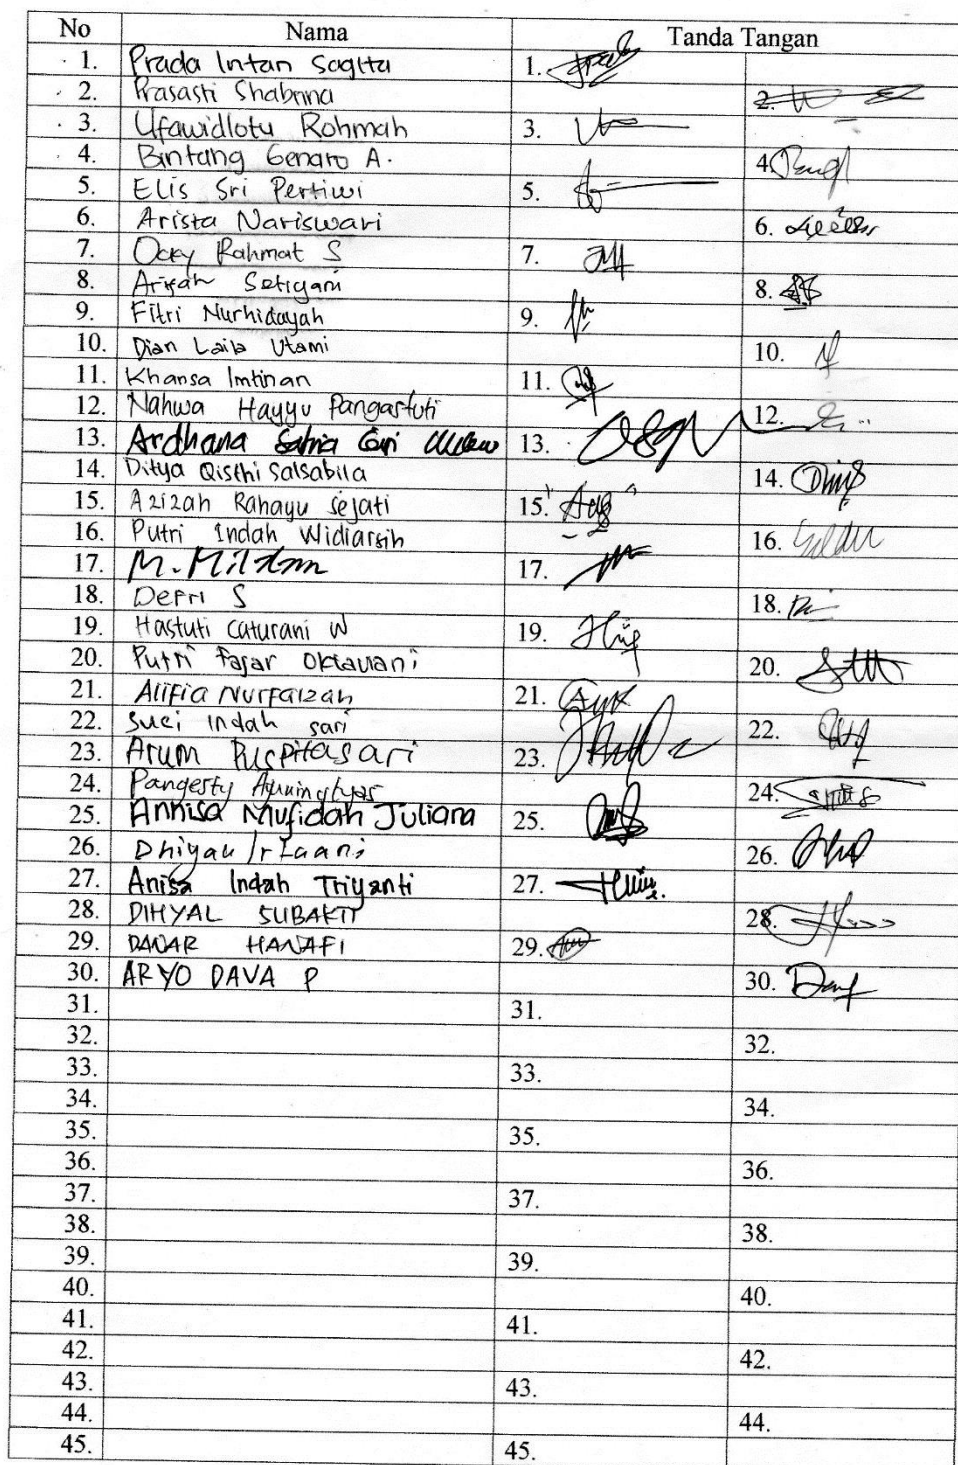 No Nama Tanda Tangan
1. Prada Intan Sagita 1.
2. Prasasti Shabrina 2.
3. Ufawidlotu Rohmah 3.
4. Bintang Genaro A. 4.
5. Elis Sri Pertiwi 5.
6. Arista Nariswari 6.
7. Ocky Rahmat S 7.
8. Arifah Setiyani 8.
9. Fitri Nurhidayah 9.
10. Dian Laila Utami 10.
11. Khansa Imtinan 11.
12. Nahwa Hayyu Pangastuti 12.
13. Ardhana Satria 13.
14. Ditya Qisthi Salsabila 14.
15. Azizah Rahayu Sejati 15.
16. Putri Indah Widiarsih 16.
17. M. Mildan 17.
18. Defri S 18.
19. Hastuti Caturani W 19.
20. Putri Fajar Oktaviani 20.
21. Alifia Nurfaizah 21.
22. Suci Indah sari 22.
23. Arum Puspitasari 23.
24. Pangesty Ayuningtyas 24.
25. Annisa Mufidah Juliana 25.
26. Dhiyau 26.
27. Anisa Indah Triyanti 27.
28. DIHYAL SUBAKTI 28.
29. DANAR HANAFI 29.
30. ARYO DAVA P 30.
31. 31.
32. 32.
33. 33.
34. 34.
35. 35.
36. 36.
37. 37.
38. 38.
39. 39.
40. 40.
41. 41.
42. 42.
43. 43.
44. 44.
45. 45.